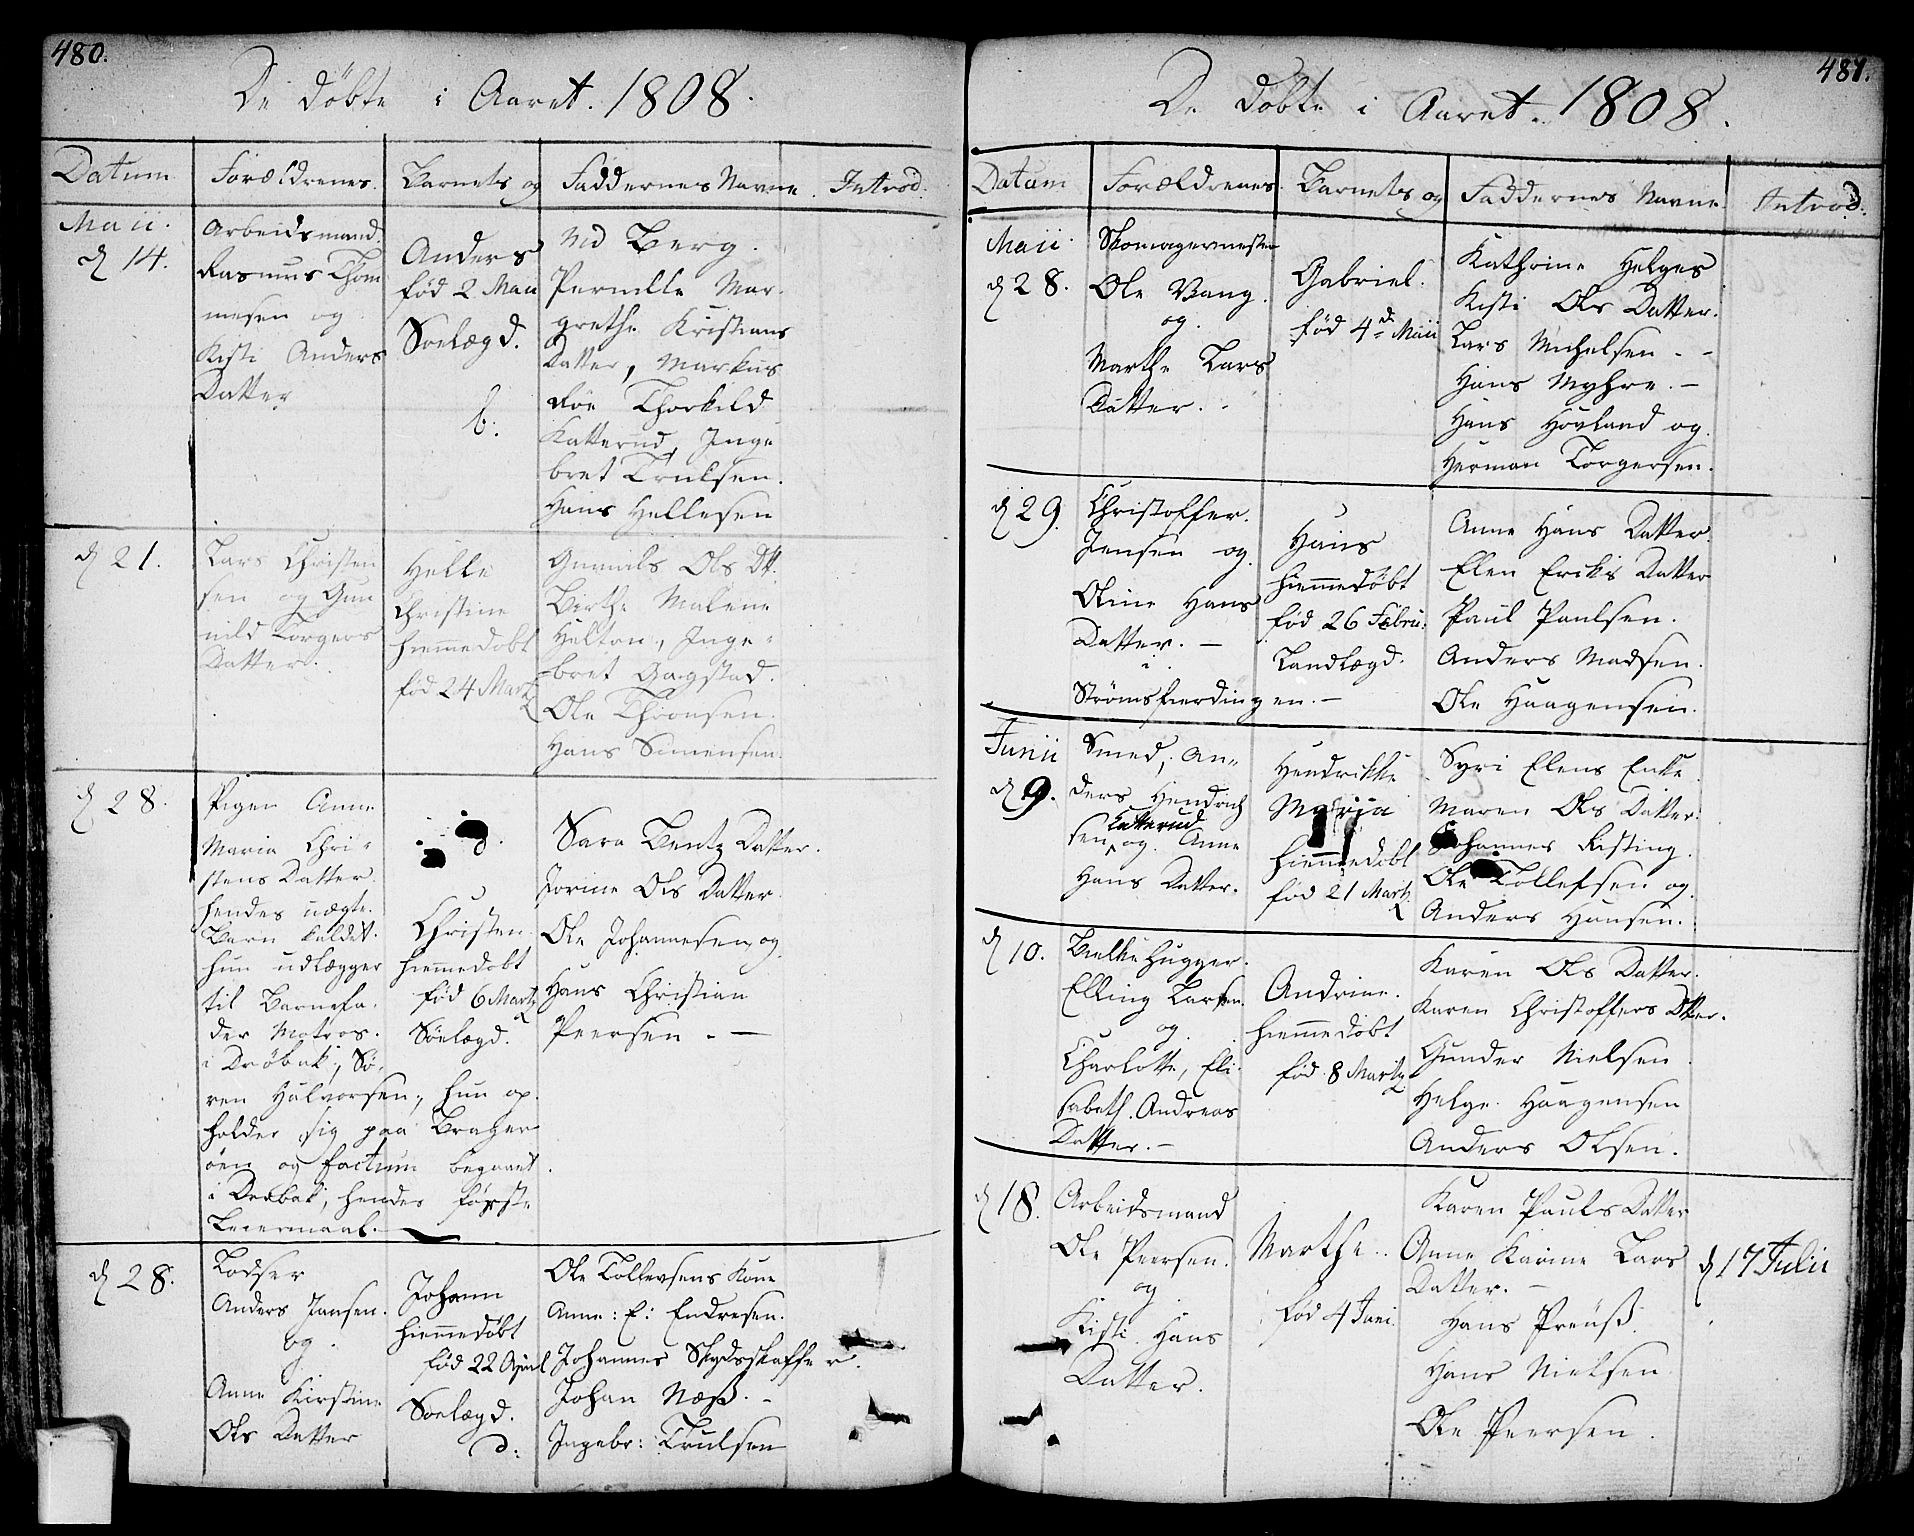 480.
De döbte i Aaret. 1808.
Datum
Forældrenes.
Barnets og
Faddernes Navne.
Introd.
Maii.
d 14.
Arbeidsmand.
Rasmus Thom
mesen og
Kisti Anders
Datter
Anders
fød 2 Maii
Søelægd.
Md Berg.
Pernille Mar-
grethe Kristians
Datter, Markus
Röe Thorkild
Katterud, Inge
bret Trulsen.
Hans Hellesen
d 21.
Lars Christen
sen og Gun
nild Torgers
Datter.
Helle
Christine
hiemmedøbt
fød 24 Martz
Gunnils Ols Dt.
Birthe Malene
Helton, Inge-
bret Gagstad.
Ole Thronsen.
Hans Simensen.
d 28.
Pigen Anne
Maria Chri-
stens Datter.
hendes uægte
Barn kaldet.
hun udlægger
til Barnefa-
der Matros.
i Dröbak, Sö-
ren Halvorsen, hun op-
holder sig paa Brager
öen og factum begaaet.
i Drøbak, hendes første
Leiermaal.
d.
Christen
hiemmedøbt
fød 6 Martz
Söelægd.
Sara Bentz Datter.
Jorine Ols Datter
Ole Johannesen og
Hans Christian
Peersen. —
d 28.
Lodser
Anders Jansen.
og.
Anne Kirstine
Ols Datter
Johann
hiemmedøbt
fød 22 April
Søelægd.
d:
Ole Tollevsens Kone
Anne: E: Endresen.
Johannes Skydsskaffer.
Johan Næß. -
Ingebr: Trulsen
481.
De döbte i Aaret. 1808.
Datum
Forældrenes.
Barnets og
Faddernes Navne.
Introd.
Maii.
d 28.
Skomagermester
Ole Bang.
og.
Marthe Lars
Datter. -
Gabriel.
fød 4de Maii
Kathrine Helges
Kisti Ols Datter.
Lars Michelsen - -
Hans Myhre. —
Hans Hovland og.
Herman Torgersen.
d 29.
Christoffer.
Jensen og
Oline Hans
Datter. —
i.
Strømsfierdingen. —
Hans
hiemmedøbt
fød 26 Febru:
Landlægd.
Anne Hans Datter.
Elen Ericks Datter
Paul Paulsen.
Anders Madsen.
Ole Haagensen.
Junii
d 9.
Smed, An-
ders Hendrich
Katterud
sen, og. Anne
Hans Datter.
Hendrikke
Maria
hiemmedøbt
fød 21 Martz
Syri Elens Enke.
Maren Ols Datter.
Johannes Risting.
Ole Tollefsen og.
Anders Hansen.
d 10.
Bielkehugger.
Elling Larsen.
og.
Charlotte, Eli-
sabeth. Andreas
Datter. —
Andrine.
hiemmedøbt
fød 8 Martz
Karen Ols Datter.
Karen Christoffers Dtter.
Gunder Nielsen
Helge Haagensen
Anders Olsen.
d 18.
Arbeidsmand
Ole Peersen.
og
Kisti Hans
Datter.
Marthe.
fød 4 Juni
Karen Pauls Datter
Anne Karine Lars
Datter. —
Hans Preuß.
Hans Nielsen
Ole Peersen.
d 17 Julii